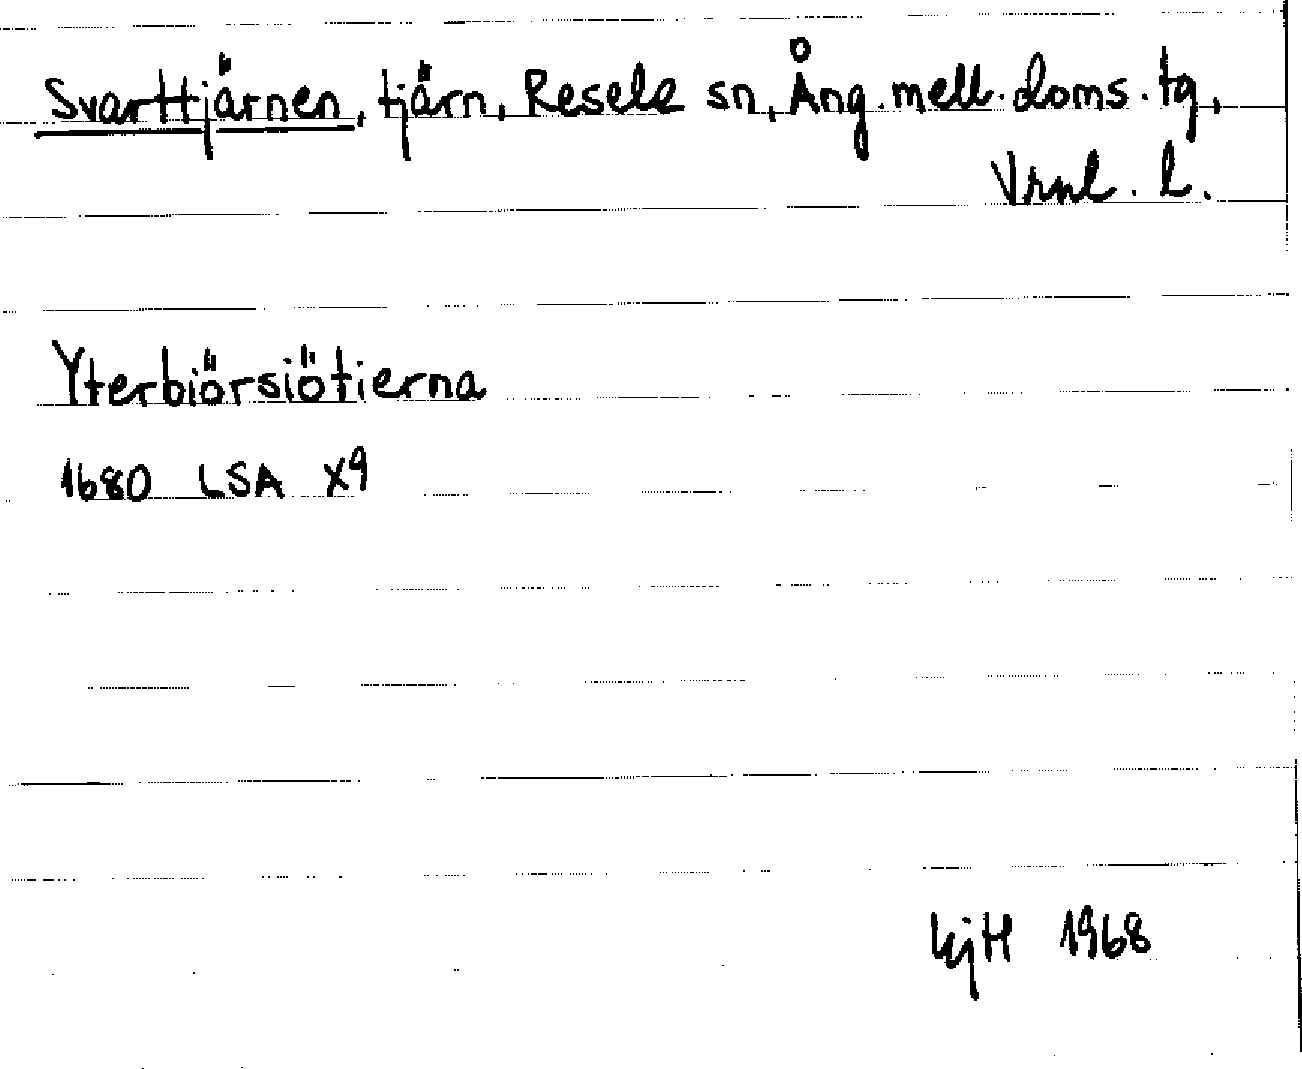 Svarttjärnen, tjärn, Resele sn, Ång. mell. doms. tg,
Vrnl. l.
Yterbiörsiötierna
1680 LSA X9
KjH 1968